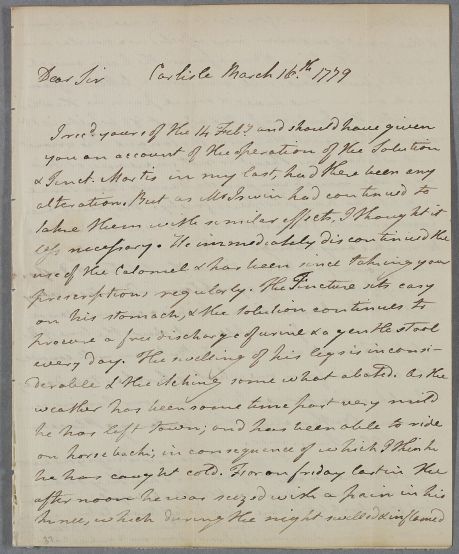 Dear Sir Carlisle March 16.th 1779
I rec.d yours of the 14 Feb.y and should have given
you an account of the operation of the Solution
& Tinct. Martis in my last, had there been any
alteration. But as Mr Irwin had continued to
take them with similar effects, I thought it
less necessary. He immediately discontinued the
use of the Calomel & has been since taking your
prescriptions regularly. The Tincture sits easy
on his stomach, & the Solution continues to
procure a free discharge of urine & a gentle stool
every day. The swelling of his legs is inconsi-
derable & the itching some what abated. As the
weather has been some time past very mild
he has left town; and has been able to ride
on horse back; in consequence of which I think
he has caught cold. For on friday last in the
after noon he was seized with a pain in his
knee, which during the night swelled & inflamed